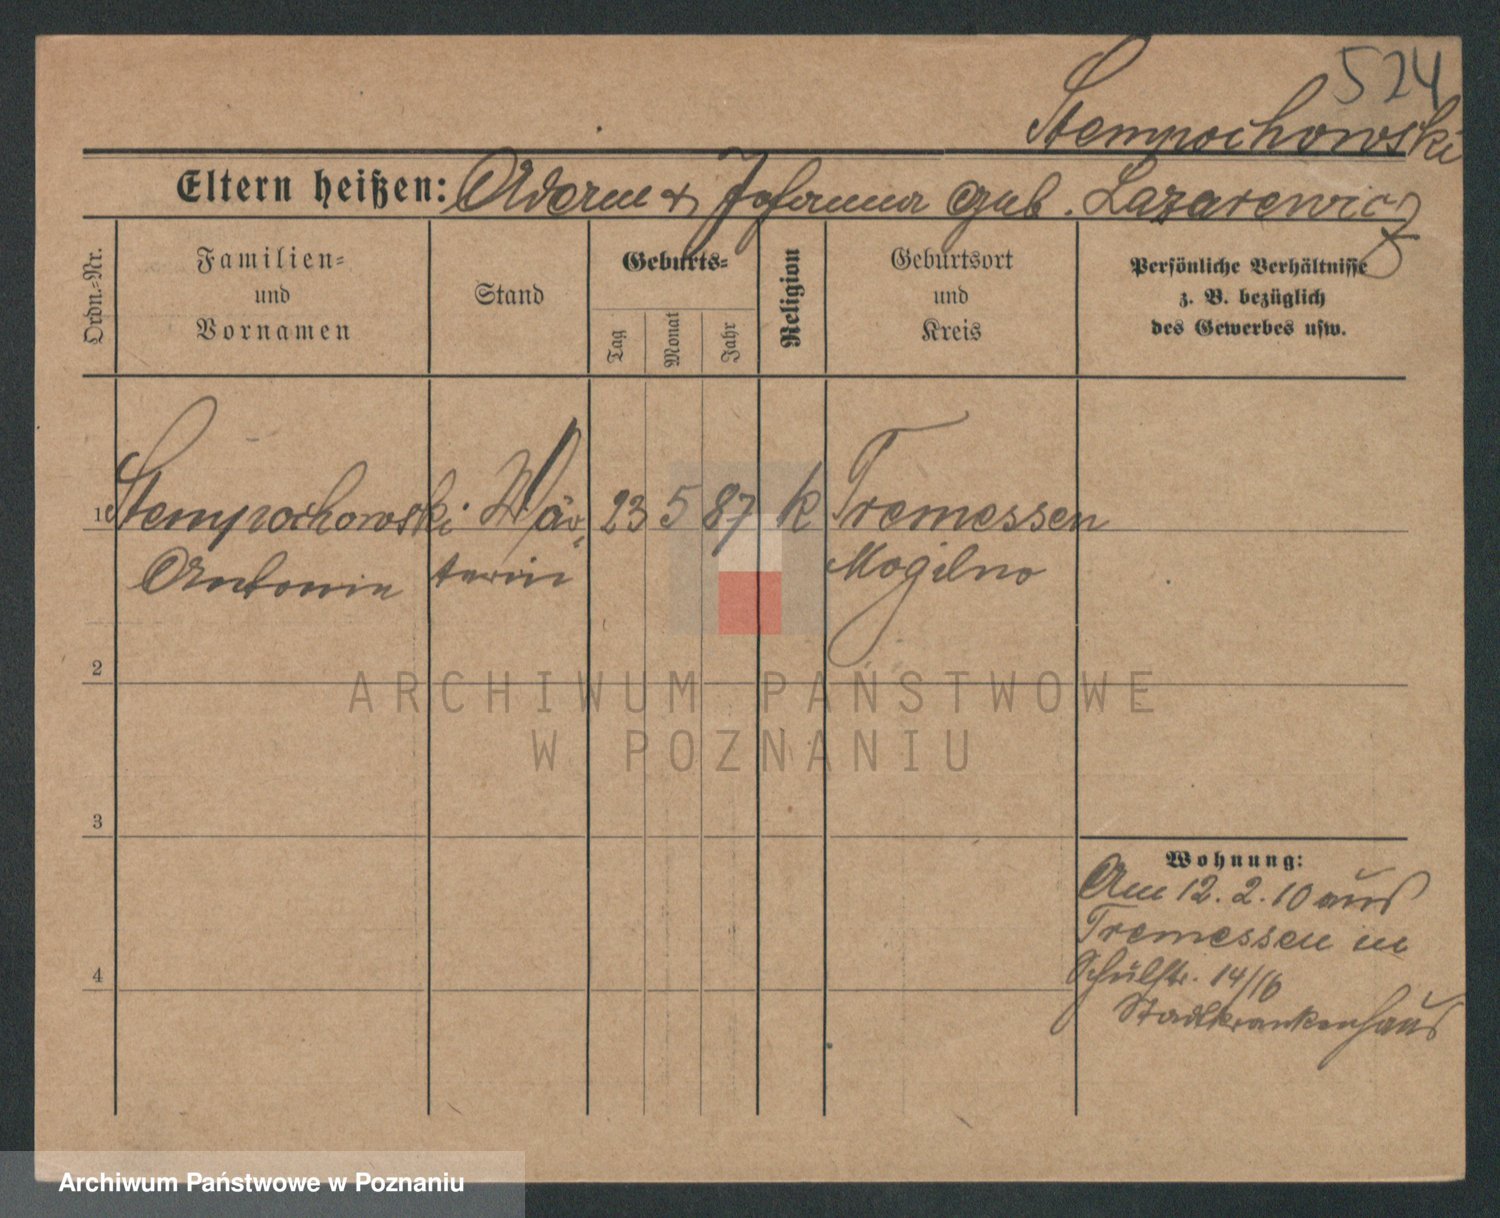 524
Stempochowski
Eltern heißen: Adam & Johanna geb. Lazarewicz
Ordn.-Nr.
Familien-
und
Vornamen
Stand
Geburts-
Tag
Monat
Jahr
Religion
Geburtsort
und
Kreis
Persönliche Verhältnisse
z. B. bezüglich
des Gewerbes usw.
1 Stempochowski Wär- 23 5 87 k Tremessen
Antonie terin Mogilno
2
3
4
Wohnung:
Am 12.2.10 aus
Tremessen in
Schulstr. 14/16
Stadtkrankenhaus
ARCHIWUM PAŃSTWOWE
W POZNANIU
Archiwum Państwowe w Poznaniu